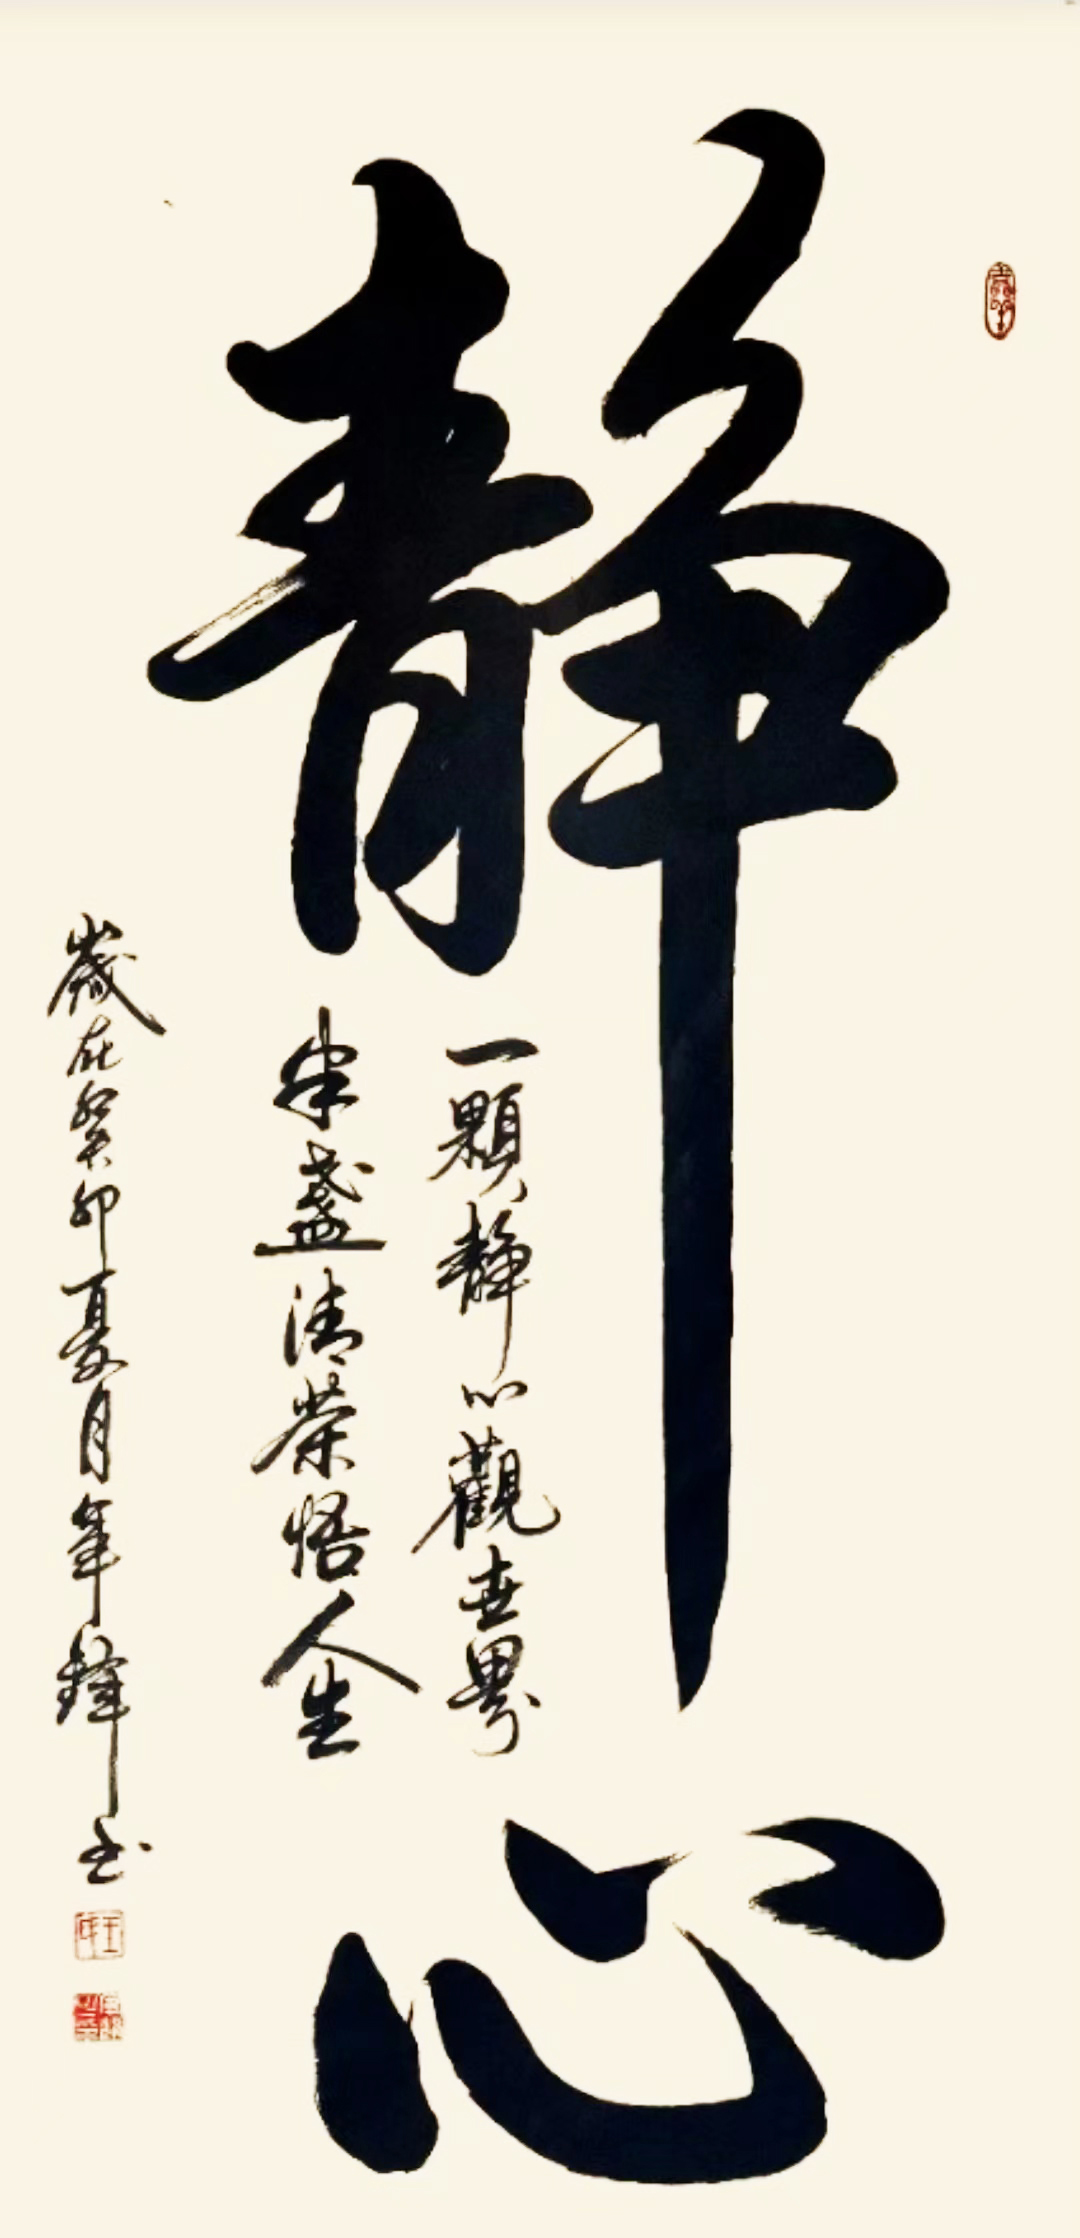 静心
一顆静心觀世界
半盞清茶悟人生
歲在癸卯夏月軍鋒书
王氏